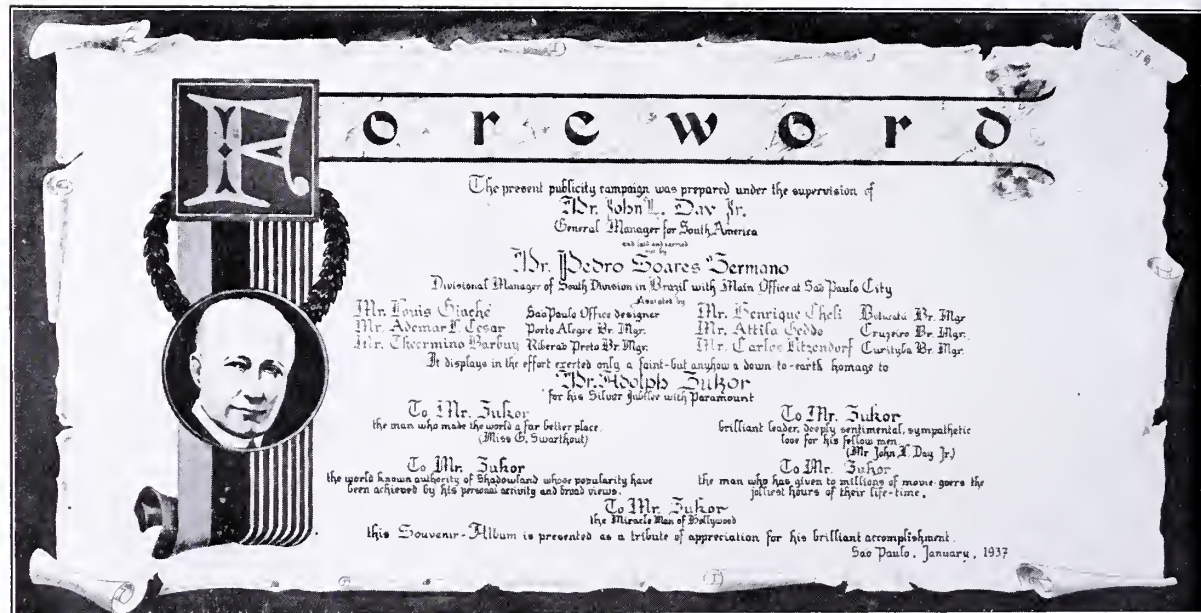 Foreword
The present publicity campaign was prepared under the supervision of
Mr. John L. Day Jr.
General Manager for South America
and laid and carried
out by
Mr. Pedro Soares Germano
Divisional Manager of South Division in Brazil with Main Office at Sao Paulo City
Assisted by
Mr. Louis Giaché Sao Paulo Office designer Mr. Henrique Cheli Botucatú Br. Mgr
Mr. Ademar L. Cesar Porto Alegre Br. Mgr. Mr. Attila Geddo Cruzeiro Br. Mgr.
Mr. Thecrmino Barbuy Riberaõ Preto Br. Mgr. Mr. Carlos Litzendorf Curityba Br. Mgr.
It displays in the effort exerted only a faint-but anyhow a down-to-earth homage to
Mr. Adolph Zukor
for his Silver Jubilee with Paramount
To Mr. Zukor
the man who made the world a far better place.
(Miss G. Swarthout)
To Mr. Zukor
brilliant leader, deeply sentimental, sympathetic
love for his fellow men.
(Mr John L. Day Jr.)
To Mr. Zukor
the world known authority of Shadowland whose popularity have
been achieved by his personal activity and broad views.
To Mr. Zukor
the man who has given to millions of movie-goers the
jolliest hours of their life-time.
To Mr. Zukor
the Miracle Man of Hollywood
this Souvenir-Album is presented as a tribute of appreciation for his brilliant accomplishment.
Sao Paulo, January, 1937